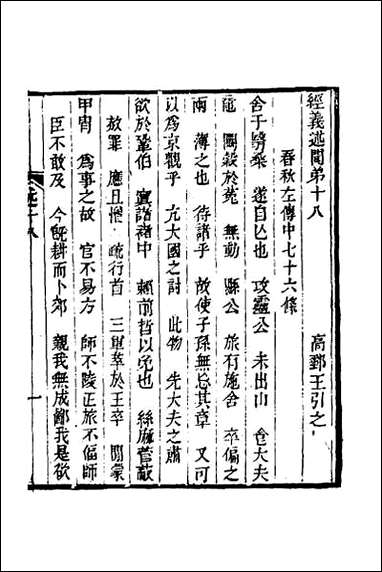 經義述聞弟十八
高郵王引之
春秋左傳中七十六條
舍于翳桑 遂自亡也 攻靈公 未出山 倉大夫
鬬縠於菟 無動 縣公 旅有施舍 卒偏之
兩 薄之也 待諸乎 故使子孫無忘其章 又可
以爲京觀乎 允大國之討 此物 先大夫之肅
欲於鞏伯 寘諸褚中 賴前哲以免也 絲麻菅蒯
放罪 應且憎 疏行首 三軍萃於王卒 閒蒙
甲冑 爲事之故 官不易方 師不陵正旅不偪師
臣不敢及 今旣耕而卜郊 親我無成鄙我是欲
一